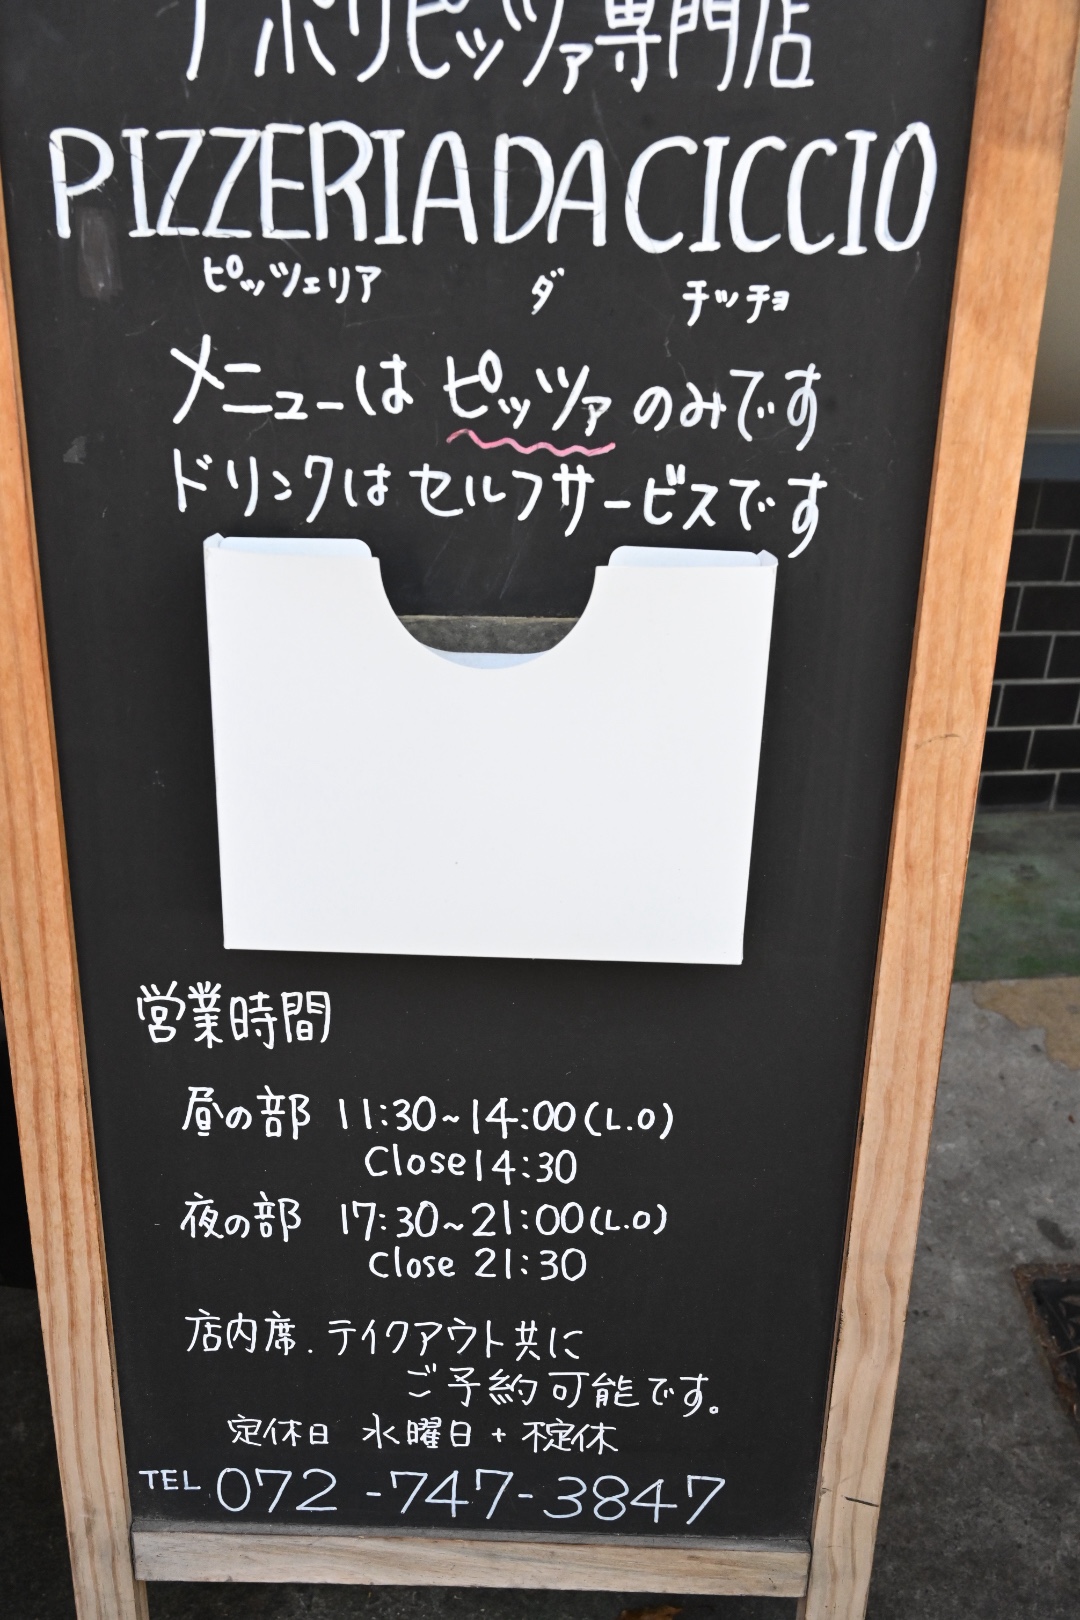 ナポリピッツァ専門店
PIZZERIA DA CICCIO
ピッツェリア ダ チッチョ
メニューは ピッツァ のみです
ドリンクは セルフサービスです
営業時間
昼の部 11:30~14:00(L.O)
Close 14:30
夜の部 17:30~21:00(L.O)
Close 21:30
店内席.テイクアウト共に
ご予約可能です。
定休日 水曜日+不定休
TEL 072-747-3847